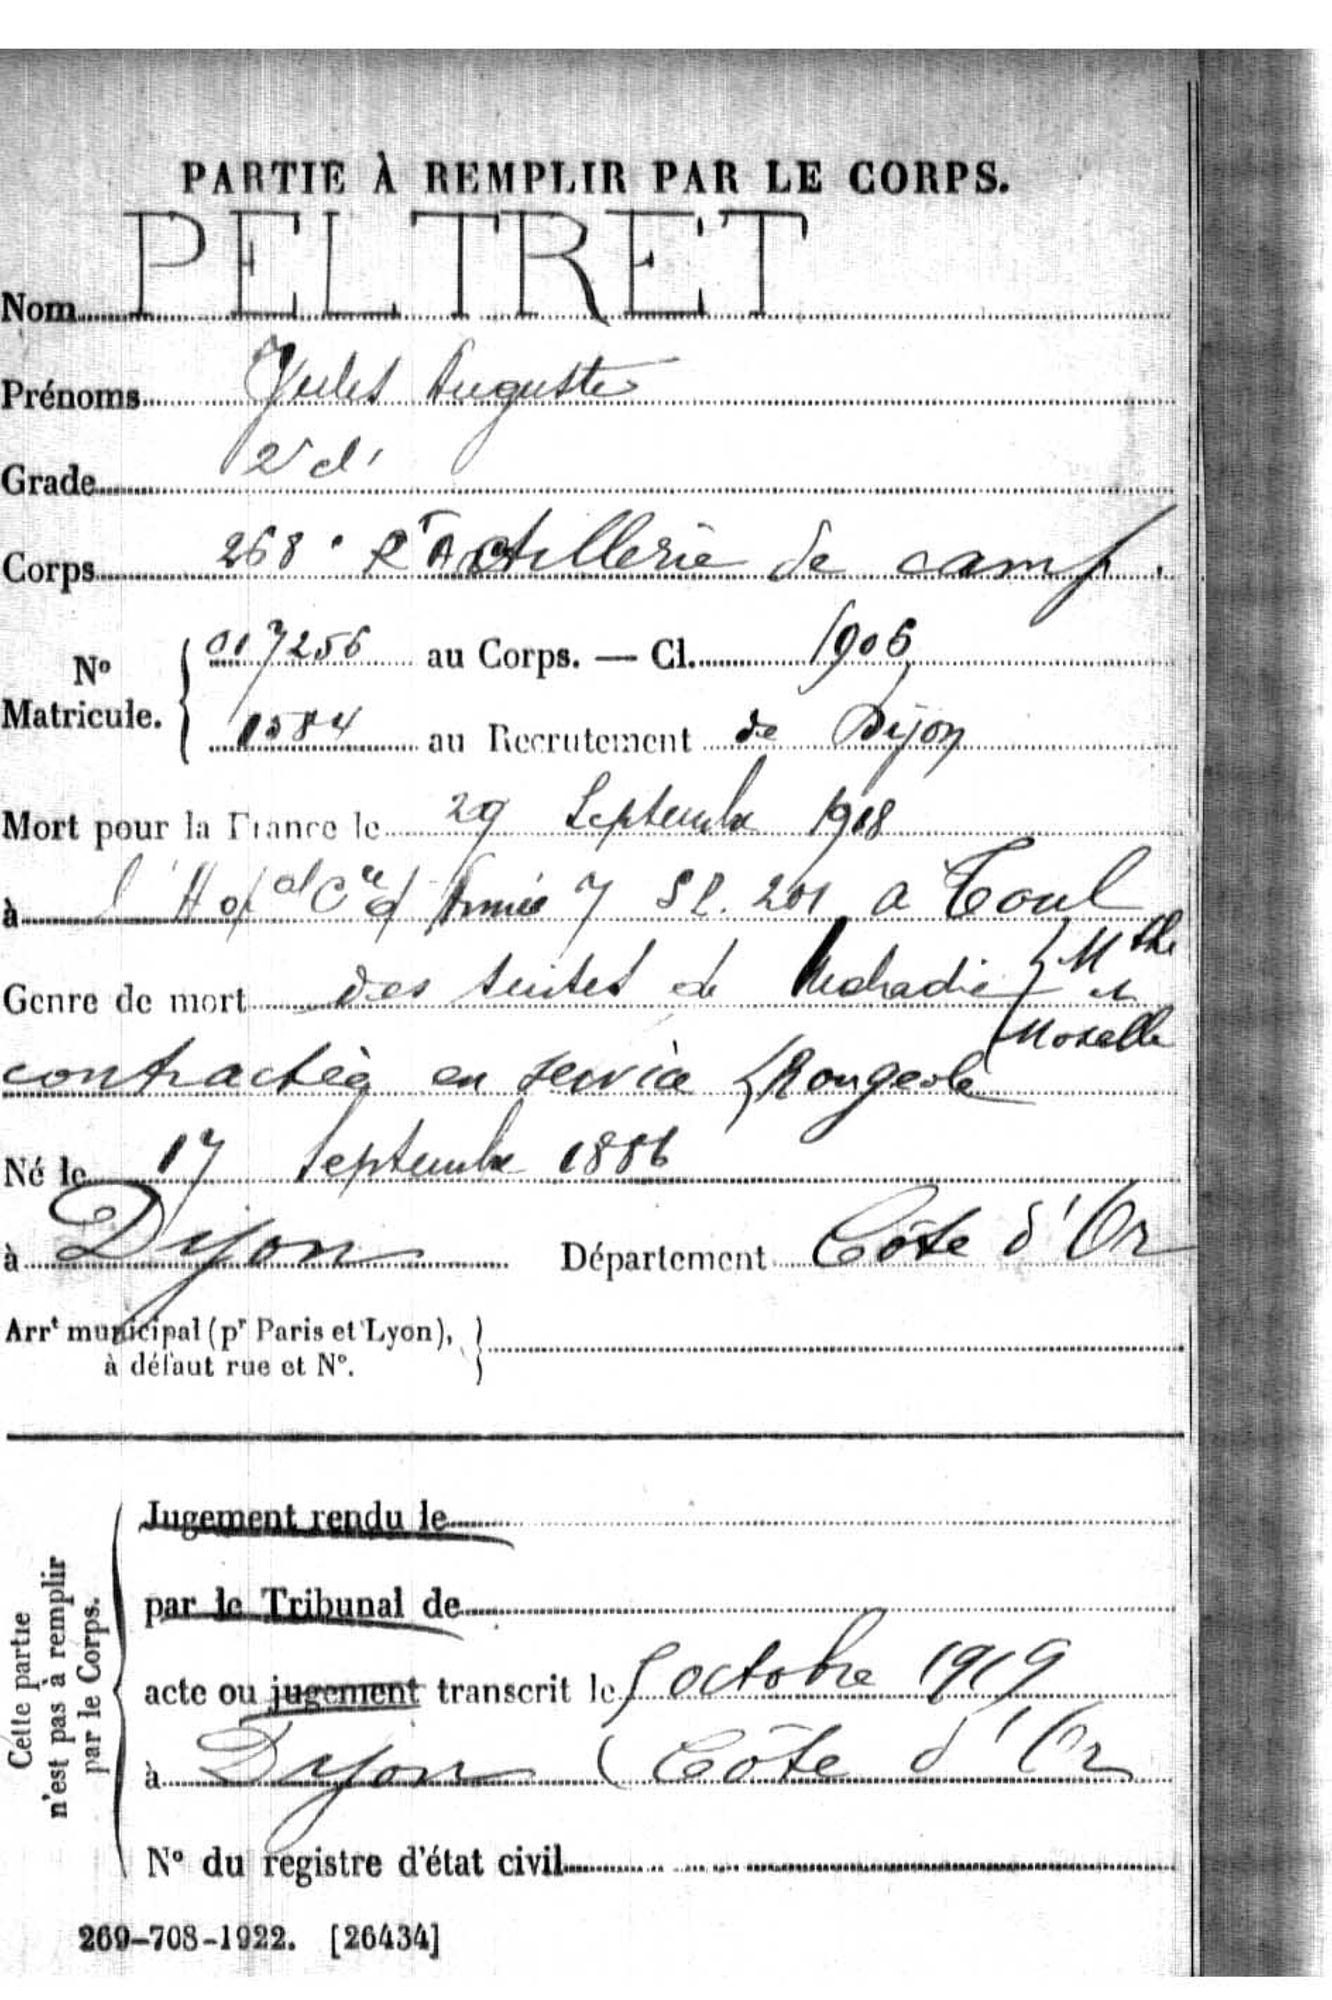 PARTIE À REMPLIR PAR LE CORPS.
Nom PELTRET
Prénoms Jules Auguste
Grade 2e cl
Corps 268e Rt Artillerie de camp.
No Matricule. 017256 au Corps. — Cl. 1906
1584 au Recrutement de Dijon
Mort pour la France le 29 Septembre 1918
à l'Hopal Ce d'Armée 7 S.P. 201 a Toul
Mthe
Genre de mort des suites de Maladie et
Moselle
contractée en service (Rougeole
Né le 17 Septembre 1886
à Dijon Département Côte d'Or
Arrt municipal (pr Paris et Lyon),
à défaut rue et No.
Cette partie
n'est pas à remplir
par le Corps.
Jugement rendu le
par le Tribunal de
acte ou jugement transcrit le 5 octobre 1919
à Dijon (Côte d'Or
No du registre d'état civil
269-708-1922. [26434]